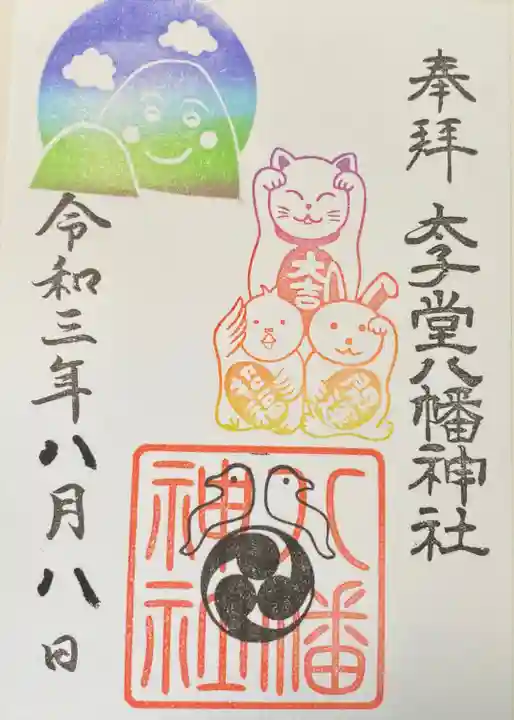 奉拝
太子堂八幡神社
大吉
八幡
神社
令和三年八月八日